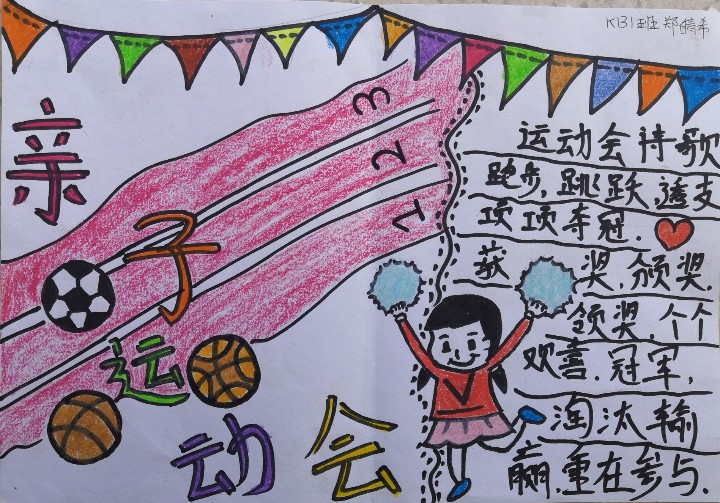 KB1班 郑希
亲
子
运
动
会
3
2
1
运动会诗歌
跑步,跳跃,透支
项项夺冠.
获奖,颁奖.
领奖,个个
欢喜.冠军,
淘汰输
赢,重在参与.